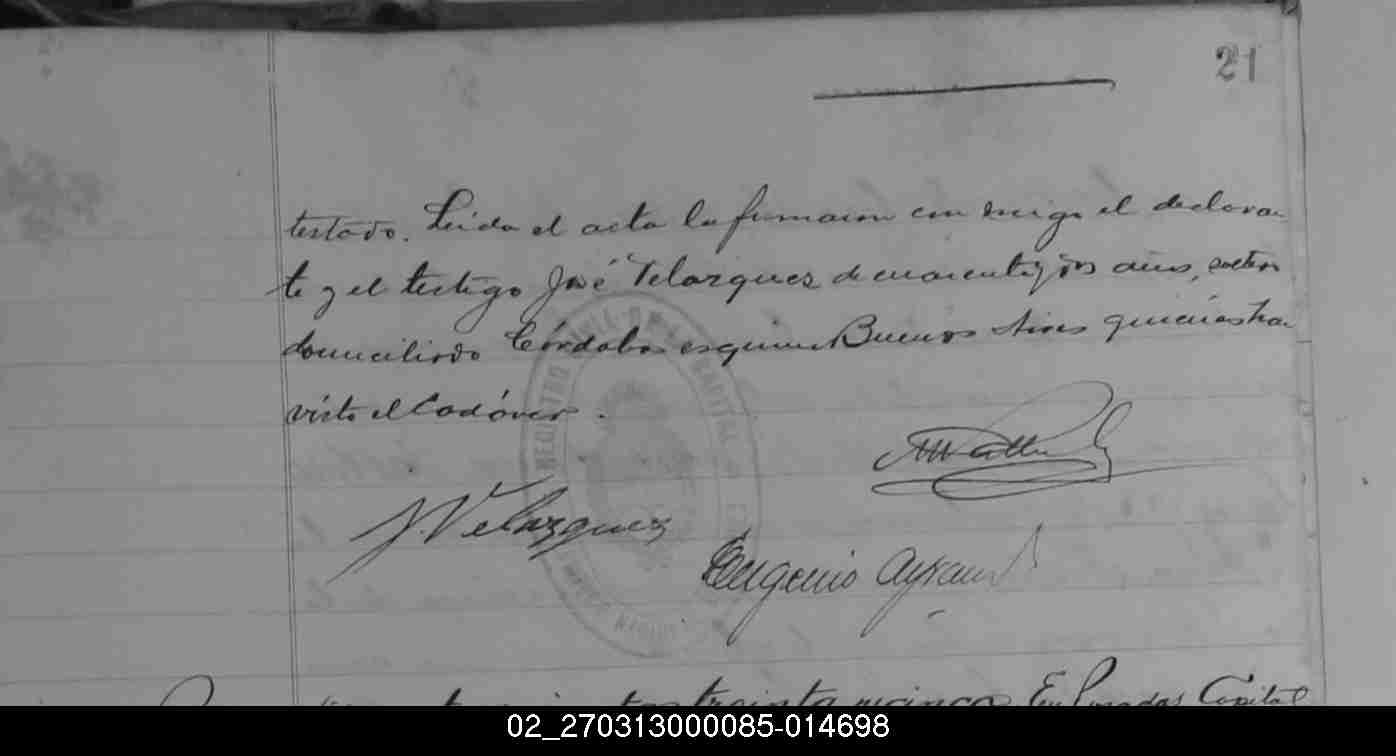 21
testado. Leida el acta la firmaron con migo el declaran
te y el testigo José Velazquez de cuarentaydos años, soltero
domiciliado Córdoba esquina Buenos Aires quienes han
visto el Cadáver.
J. Velazquez
Eugenio Ayraud
REGISTRO CIVIL DE LA CAPITAL
treinta y cinco En Posadas Capital
02_270313000085-014698